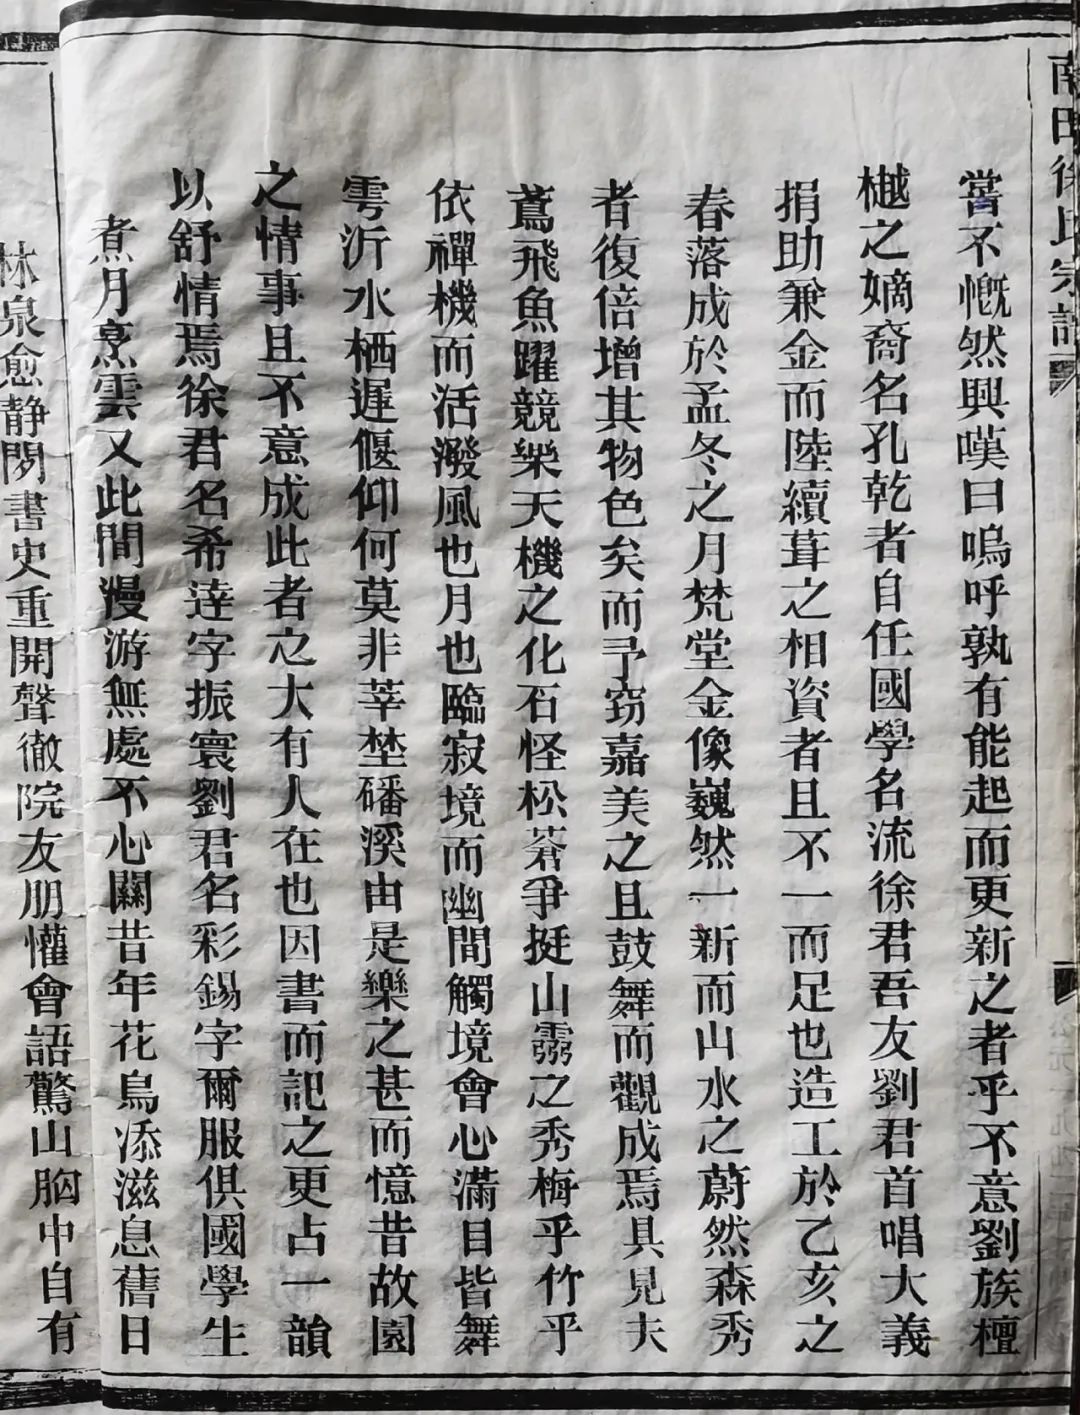 南田徐氏宗譜
嘗不慨然興嘆曰嗚呼孰有能起而更新之者乎不意劉族檀
樾之嫡裔名孔乾者自任國學名流徐君吾友劉君首唱大義
捐助兼金而陸續葺之相資者且不一而足也造工於乙亥之
春落成於孟冬之月梵堂金像巍然一新而山水之蔚然森秀
者復倍增其物色矣而予窃嘉美之且鼓舞而觀成焉具見夫
鳶飛魚躍競樂天機之化石怪松蒼爭挺山靈之秀梅乎竹乎
依禪機而活潑風也月也臨寂境而幽間觸境會心滿目皆舞
雩沂水栖遲偃仰何莫非莘埜磻溪由是樂之甚而憶昔故園
之情事且不意成此者之大有人在也因書而記之更占一韻
以舒情焉徐君名希逹字振寰劉君名彩錫字爾服俱國學生
煮月烹雲又此間漫游無處不心關昔年花鳥添滋息舊日
林泉愈静閒書史重開聲徹院友朋懽會語驚山胸中自有